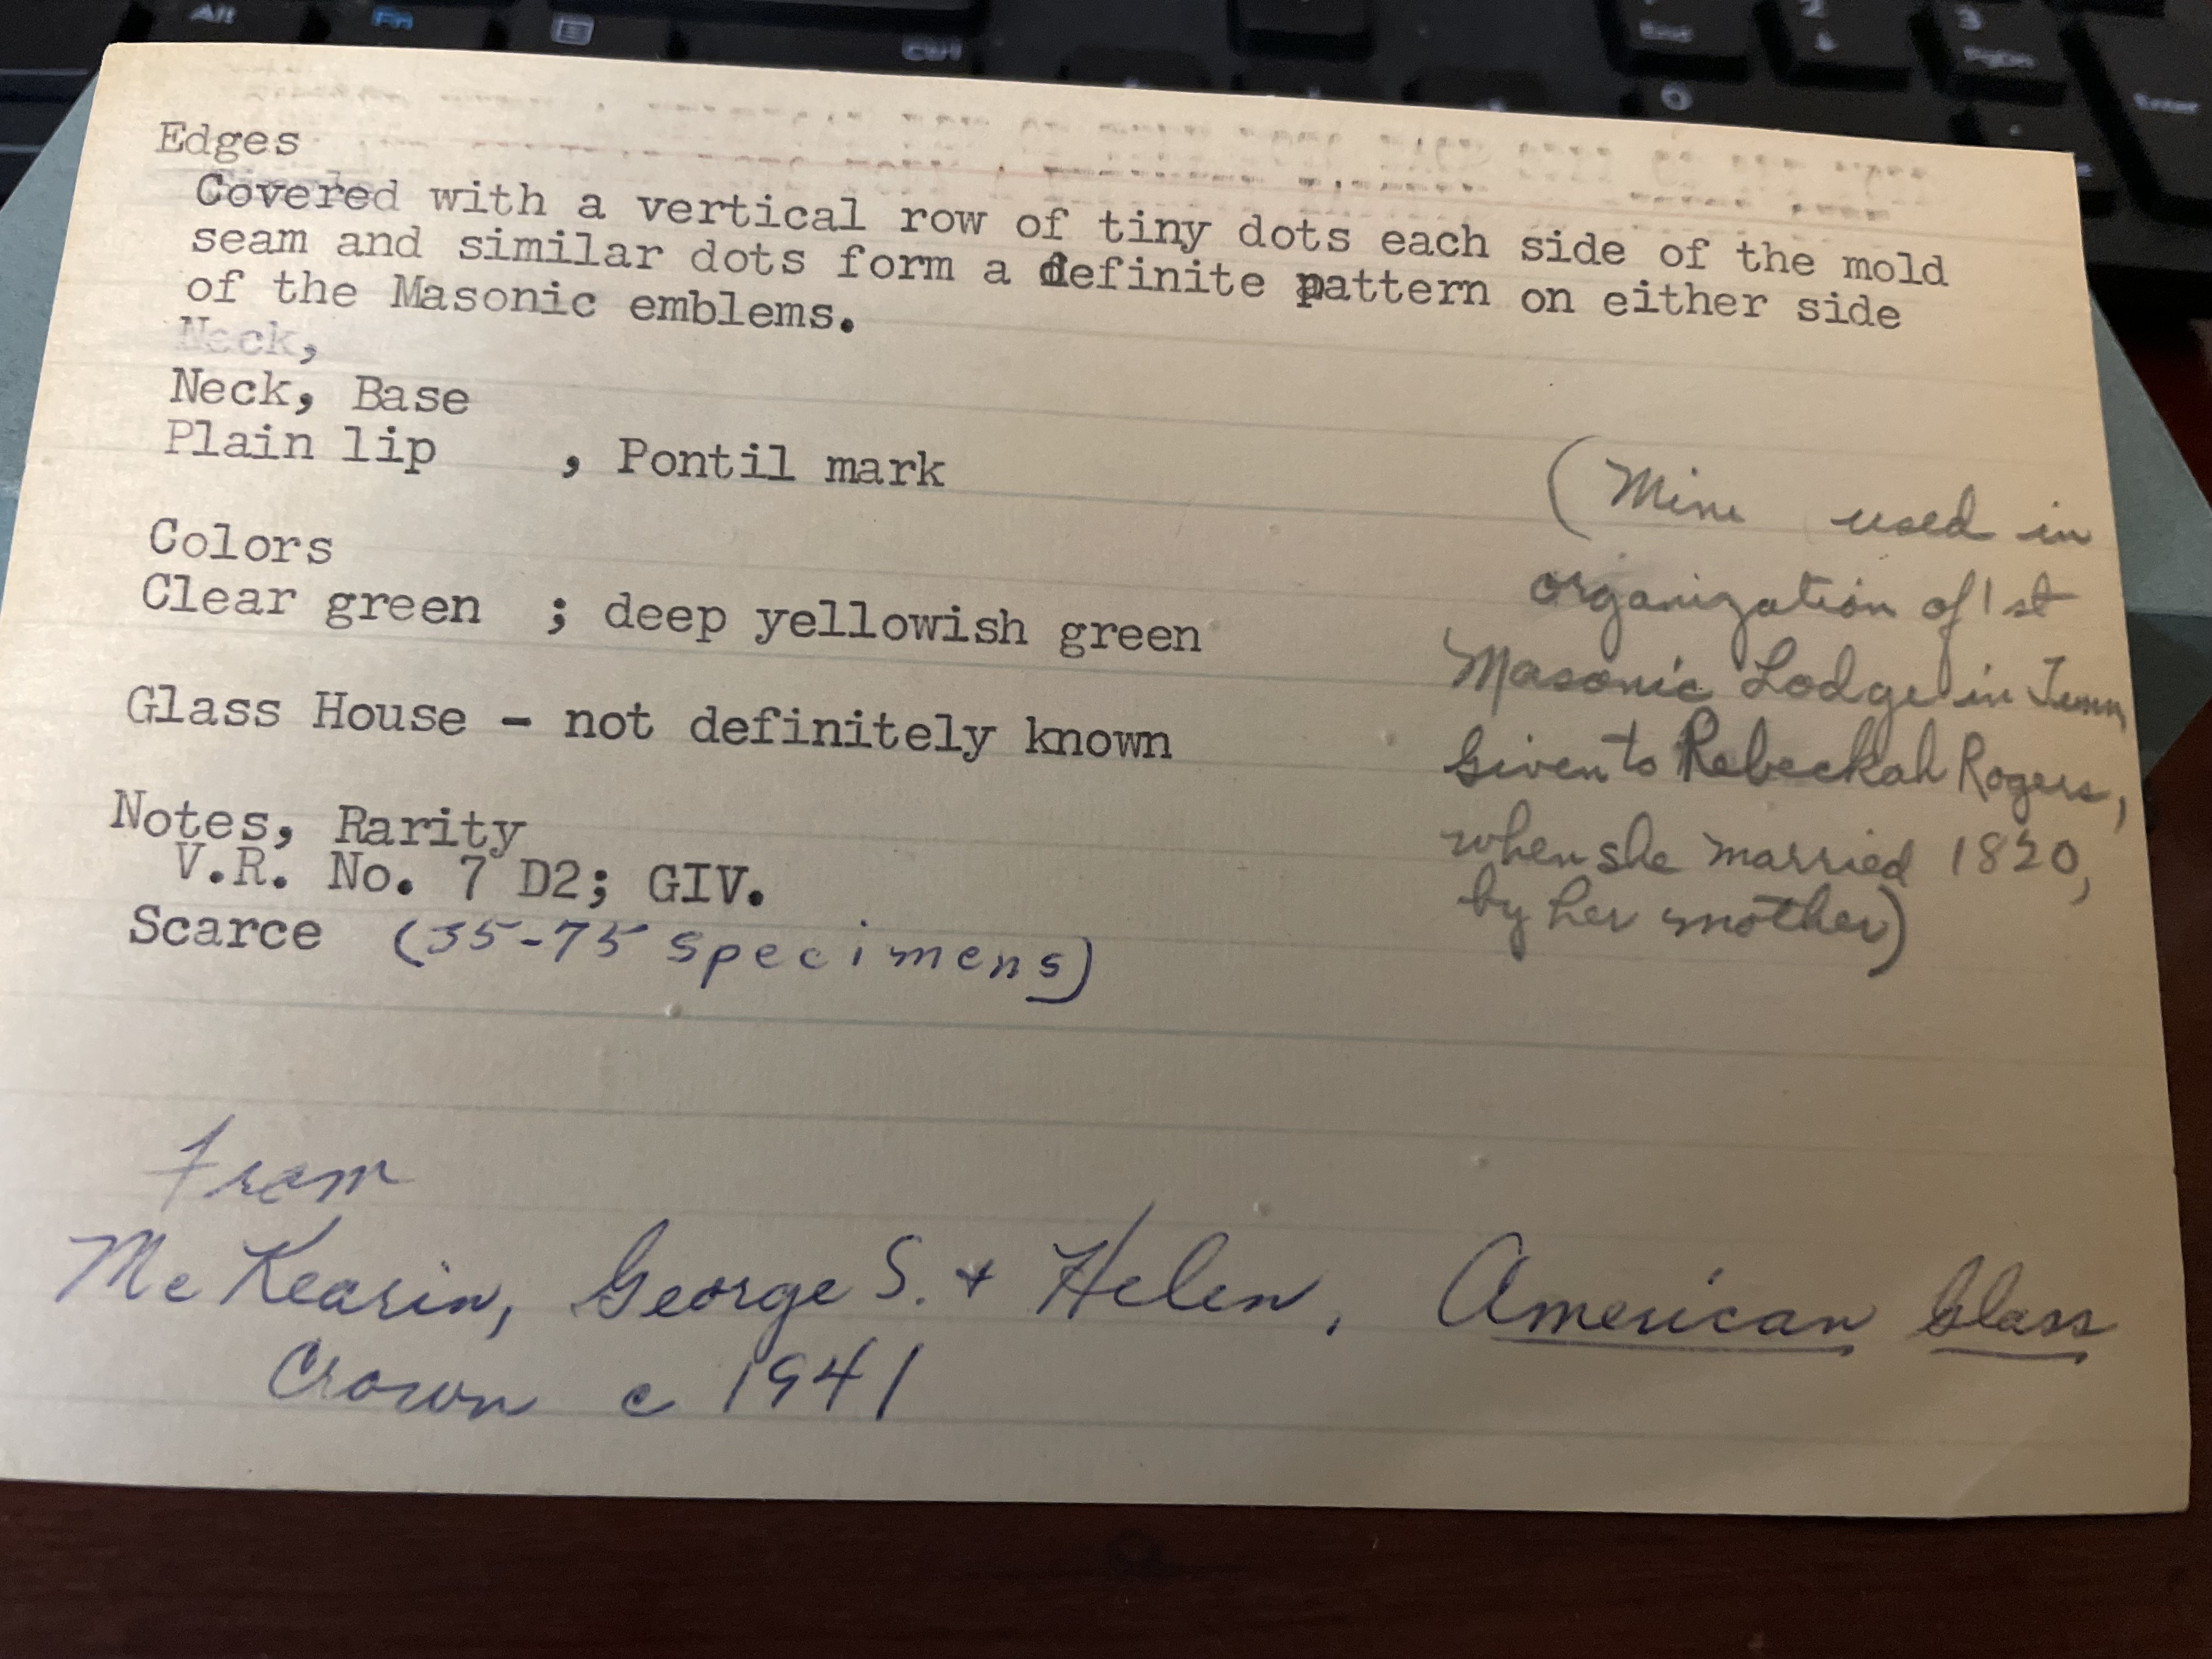 Alt
Fn
Ctrl
End
2
3
PgDn
0
Enter
Edges
Covered with a vertical row of tiny dots each side of the mold
seam and similar dots form a definite pattern on either side
of the Masonic emblems.
Neck,
Neck, Base
Plain lip , Pontil mark
Colors
Clear green ; deep yellowish green
Glass House - not definitely known
Notes, Rarity
V.R. No. 7 D2; GIV.
Scarce (35-75 specimens)
(Mine used in
organization of 1st
Masonic Lodge in Tenn
Given to Rebeckah Rogers,
when she married 1820,
by her mother)
From
McKearin, George S. + Helen, American Glass
Crown c 1941